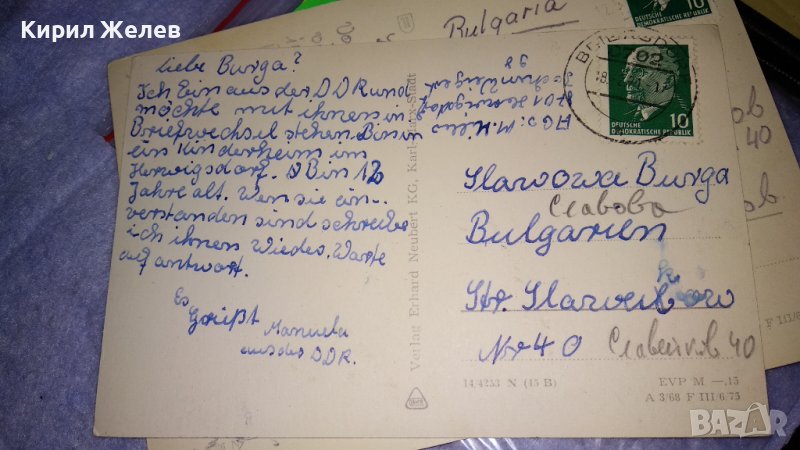 Кирил Желев
Bulgaria
10
DEUTSCHE
DEMOKRATISCHE REPUBLIK
liebe Burga?
Ich bin aus der DDR und
möchte mit ihnen in
Briefwechsel stehen Bin in
ein Kinderheim im
Herwigsdorf. Bin 12
Jahre alt. Wen sie ein-
verstanden sind schreibe
ich ihnen wieder. Warte
auf antwort.
Es
Grüßt Manuela
aus der DDR.
Verlag Erhard Neubert KG, Karl-Marx-Stadt
02
18.
10
DEUTSCHE
DEMOKRATISCHE REPUBLIK
Slawowa Burga
Славова
Bulgarien
Str. Slaweikow
Nr 40 Славейков 40
14/4253 N (15 B)
EVP M —.15
A 3/68 F III/6/75
40
F III/6
BAZAR